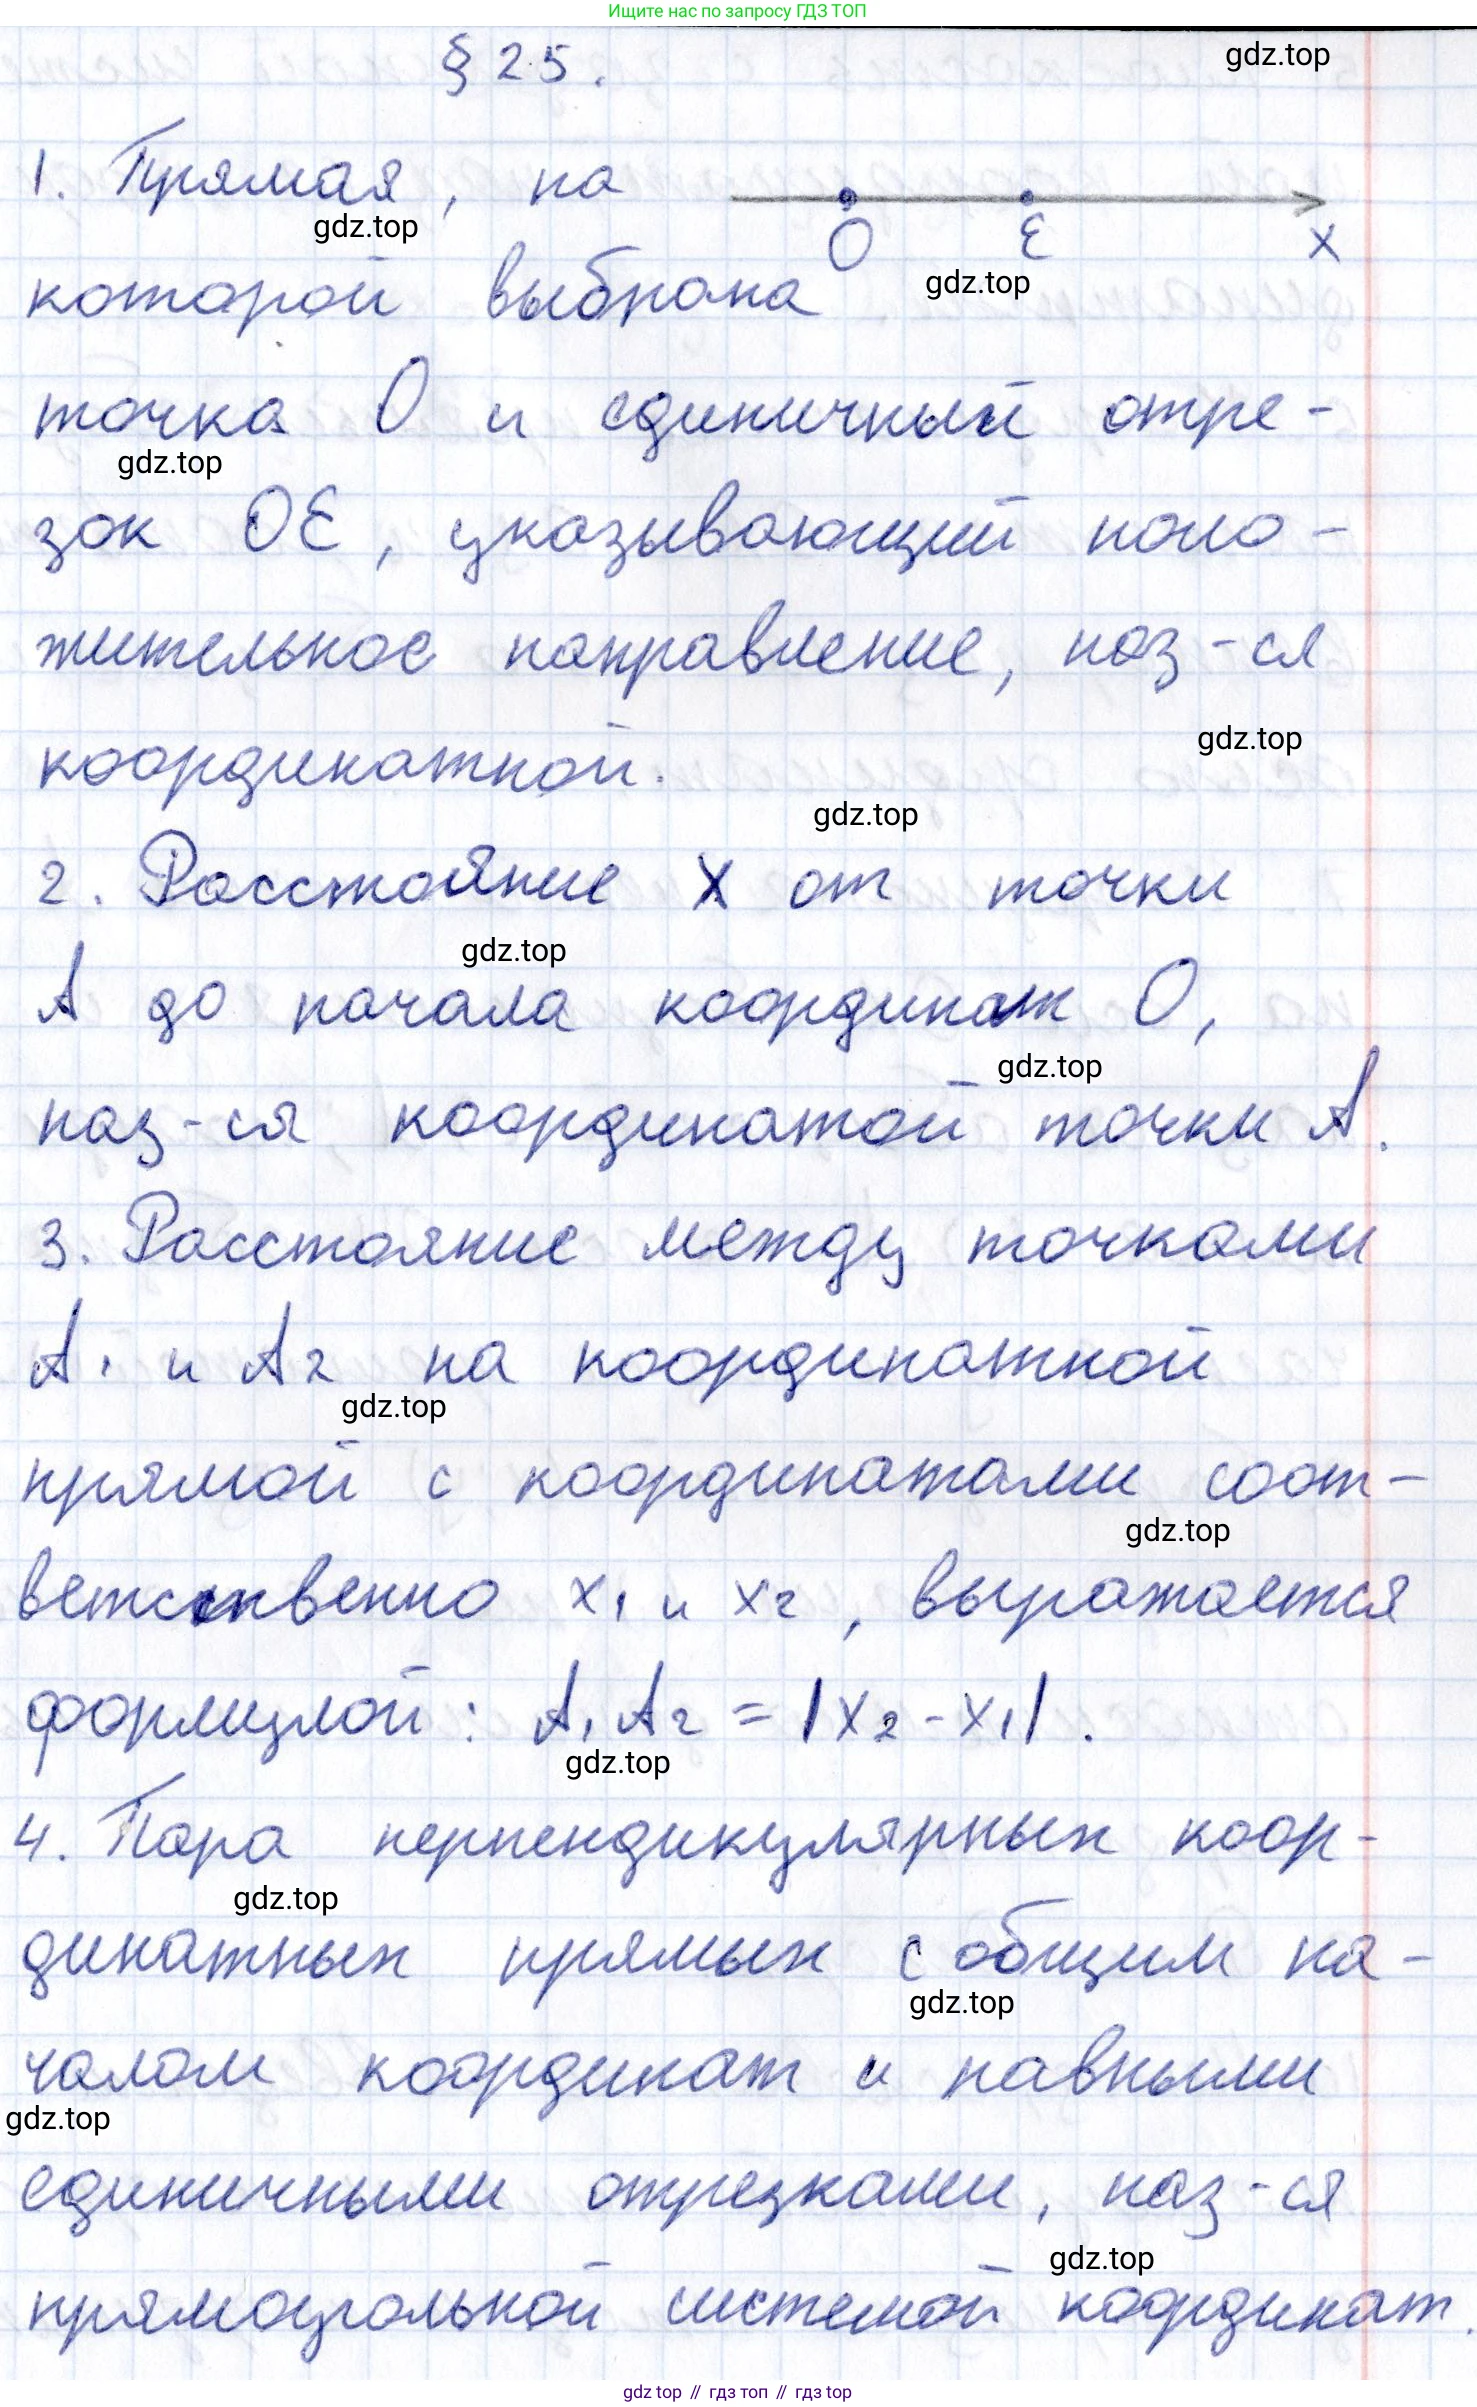 Ищите нас по запросу ГДЗ ТОП
§ 25.
gdz.top
1. Прямая, на
O E x
gdz.top
которой выбрана
gdz.top
точка O и единичный отре-
gdz.top
зок OE, указывающий поло-
жительное направление, наз-ся
gdz.top
координатной.
gdz.top
2. Расстояние x от точки
gdz.top
A до начала координат O,
gdz.top
наз-ся координатой точки A.
3. Расстояние между точками
A1 и A2 на координатной
gdz.top
прямой с координатами соот-
gdz.top
ветственно x1 и x2, выражается
формулой: A1A2 = |x2 - x1|.
gdz.top
4. Пара перпендикулярных коор-
gdz.top
динатных прямых с общим на-
gdz.top
чалом координат и равными
gdz.top
единичными отрезками, наз-ся
gdz.top
прямоугольной системой координат.
gdz.top // гдз топ // гдз top